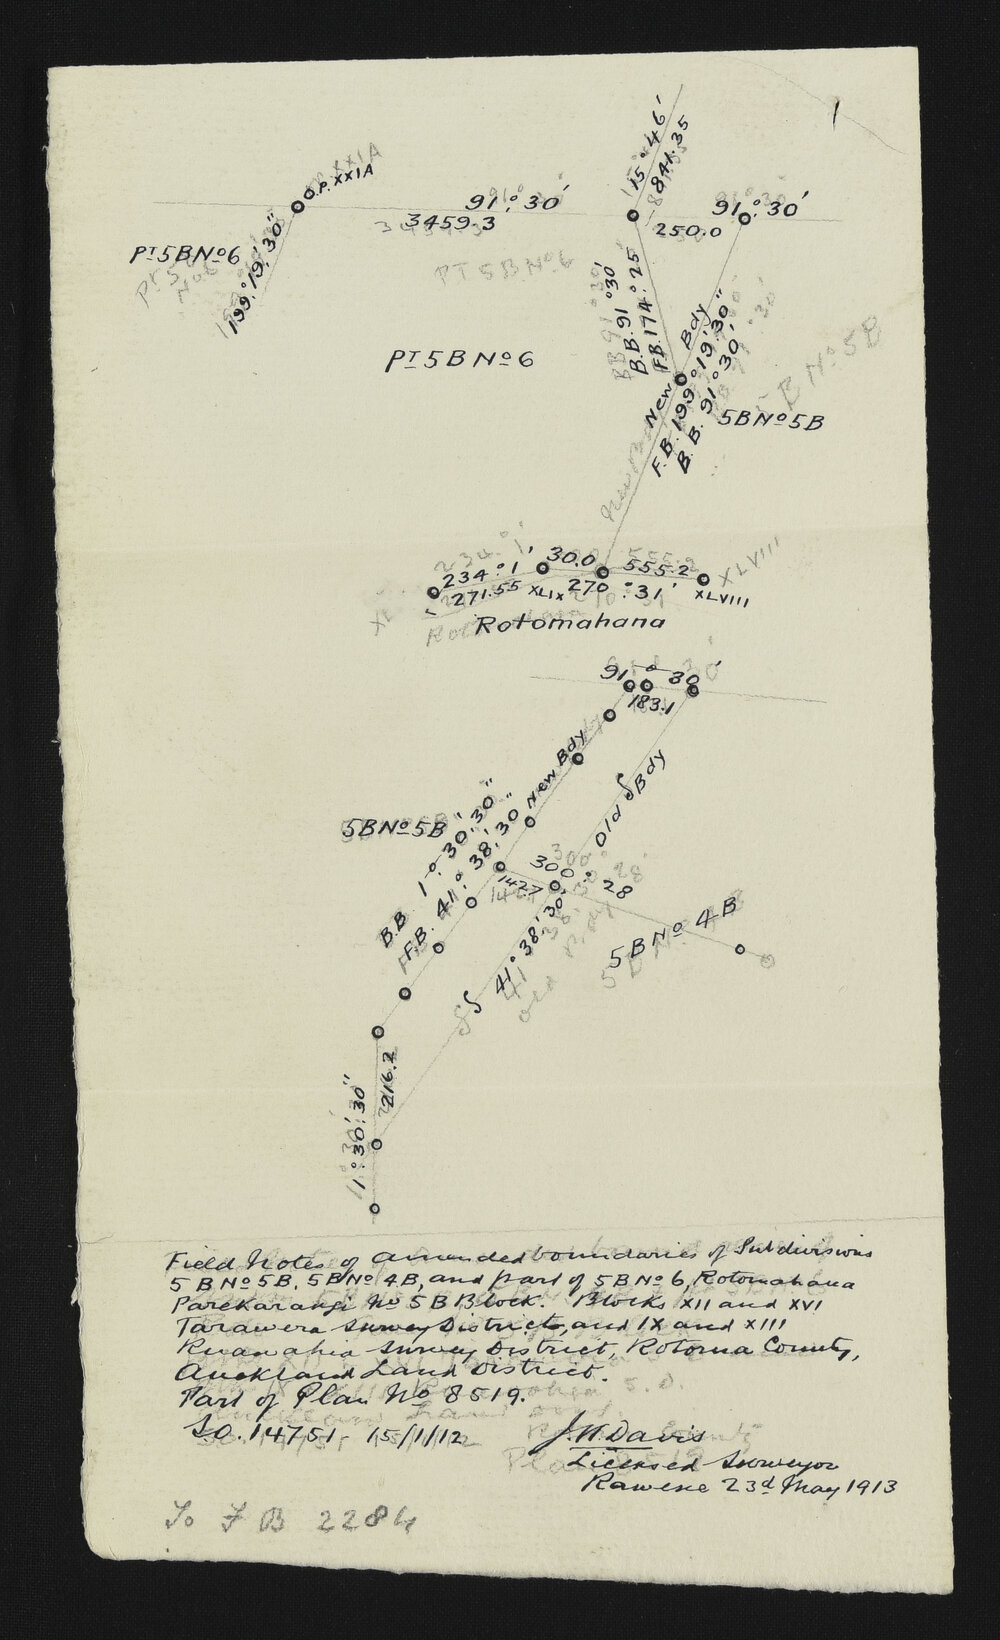 1
15° 46'
8841.35
O.P. XXIA
91° 30'
3459.3
250.0
91° 30'
199° 19' 30"
Pt 5B No 6
B.B. 91° 30'
F.B. 174° 25'
New Bdy
F.B. 199° 19' 30"
B.B. 91° 30'
Pt 5B No 6
5B No 5B
234° 1'
271.55
XLIX
30.0
270° 31'
555.2
XLVIII
Rotomahana
91° 30'
183.1
New Bdy
Old Bdy
5B No 5B
B.B. 1° 30' 30"
F.B. 41° 38' 30"
300° 28'
142.7
41° 38' 30"
5B No 4B
216.2
1° 30' 30"
Field Notes of amended boundaries of Subdivisions
5 B No 5B, 5B No 4B, and part of 5B No 6, Rotomahana
Parekarangi No 5B Block. Blocks XII and XVI
Tarawera Survey District, and IX and XIII
Ruawahia Survey District, Rotorua County,
Auckland Land District.
Part of Plan No 8519.
S.O. 14751 - 15/1/12
J.H. Davis
Licensed Surveyor
Rawene 23d May 1913
To F B 2284